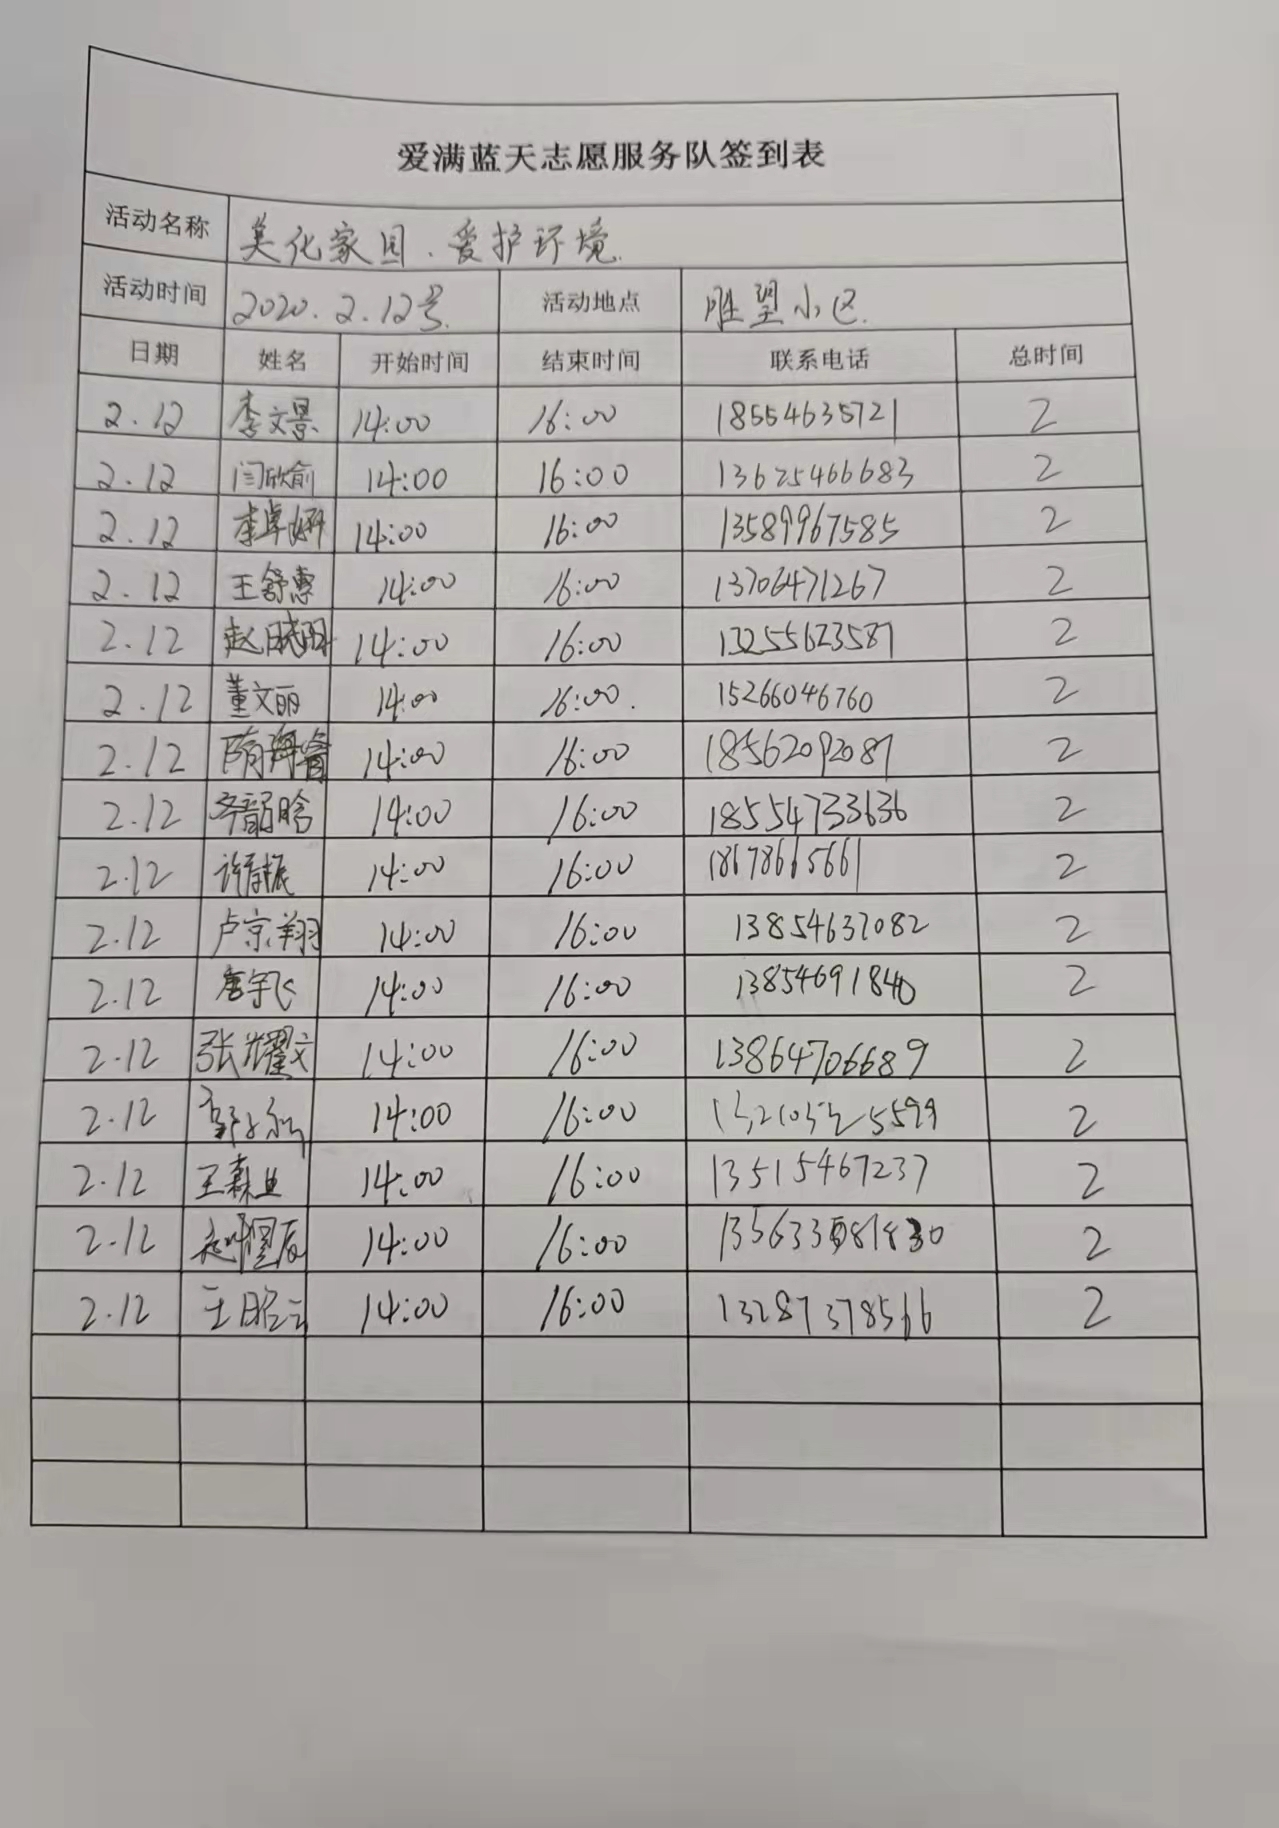 爱满蓝天志愿服务队签到表
活动名称 美化家园、爱护环境.
活动时间 2020.2.12号. 活动地点 胜望小区.
日期 姓名 开始时间 结束时间 联系电话 总时间
2.12 李文景 14:00 16:00 18554635721 2
2.12 闫欣俞 14:00 16:00 13625466683 2
2.12 李卓妍 14:00 16:00 13589967585 2
2.12 王舒惠 14:00 16:00 13706471267 2
2.12 赵晓阳 14:00 16:00 13255623587 2
2.12 董文丽 14:00 16:00. 15266046760 2
2.12 隋 14:00 16:00 18562092087 2
2.12 齐韶晗 14:00 16:00 18554733636 2
2.12 许 14:00 16:00 18678665661 2
2.12 卢京翔 14:00 16:00 13854637082 2
2.12 唐宇飞 14:00 16:00 13854691840 2
2.12 张耀文 14:00 16:00 13864706689 2
2.12 14:00 16:00 2
2.12 王森业 14:00 16:00 13515467237 2
2.12 14:00 16:00 2
2.12 王昭云 14:00 16:00 13287378566 2